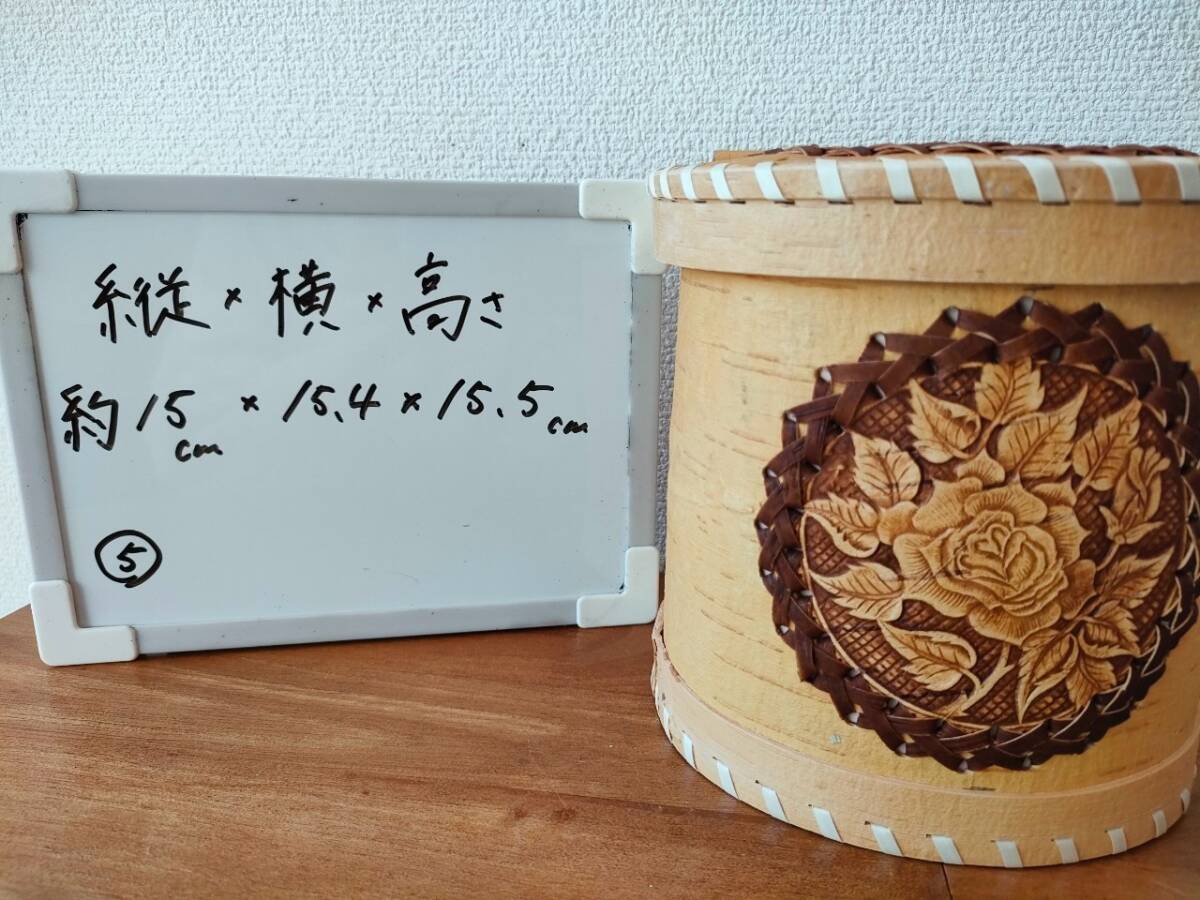 縦×横×高さ
約15cm×15.4×15.5cm
⑤